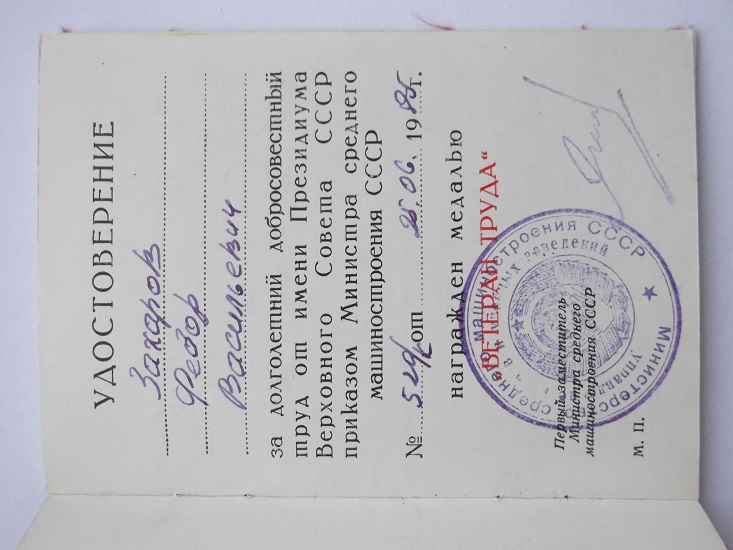 УДОСТОВЕРЕНИЕ
Захаров
Федор
Васильевич
за долголетний добросовестный
труд от имени Президиума
Верховного Совета СССР
приказом Министра среднего
машиностроения СССР
№ от 25.06. 1985г.
награжден медалью
„ВЕТЕРАН ТРУДА“
Первый заместитель
Министра среднего
машиностроения СССР
М. П.
Министерство среднего машиностроения СССР